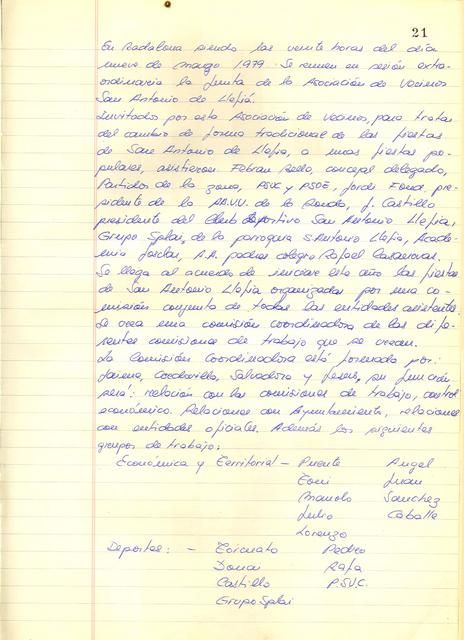 21
En Badalona siendo las veinte horas del día
nueve de marzo 1979. Se reunen en sesión extra-
ordinaria la Junta de la Asociación de Vecinos
San Antonio de Llefiá.
Invitados por esta Asociación de Vecinos, para tratar
del cambio de forma tradicional de las fiestas
de San Antonio de Llefia, a unas fiestas po-
pulares, asistieron Febran Bello, concejal delegado,
Partidos de la zona, PSUC y PSOE, Jordi Fond. pre-
sidente de la AA.VV. de la Ronda, J. Castillo
presidente del Club Deportivo San Antonio Llefia,
Grupo Splai, de la parroquia S. Antonio Llefia, Acade-
mia Jordar, A.A. padres colegio Rafael Casanovas.
Se llega al acuerdo de iniciar este año las fiestas
de San Antonio Llefia organizadas por una co-
misión conjunta de todas las entidades asistentes.
Se crea una comisión coordinadora de las dife-
rentes comisiones de trabajo que se crean.
La Comisión Coordinadora está formada por:
Jaime, Cordovilla, Salvadora y Jesus, su función
será: relación con las comisiones de trabajo, control
económico. Relaciones con Ayuntamiento, relaciones
con entidades oficiales. Además los siguientes
grupos de trabajo:
Económica y Territorial - Puente Angel
Toni Juan
Manolo Sanchez
Julio Caballe
Lorenzo
Deportes: - Torcuato Pedro
Donai Rafa
Castillo P.S.U.C.
Grupo Splai